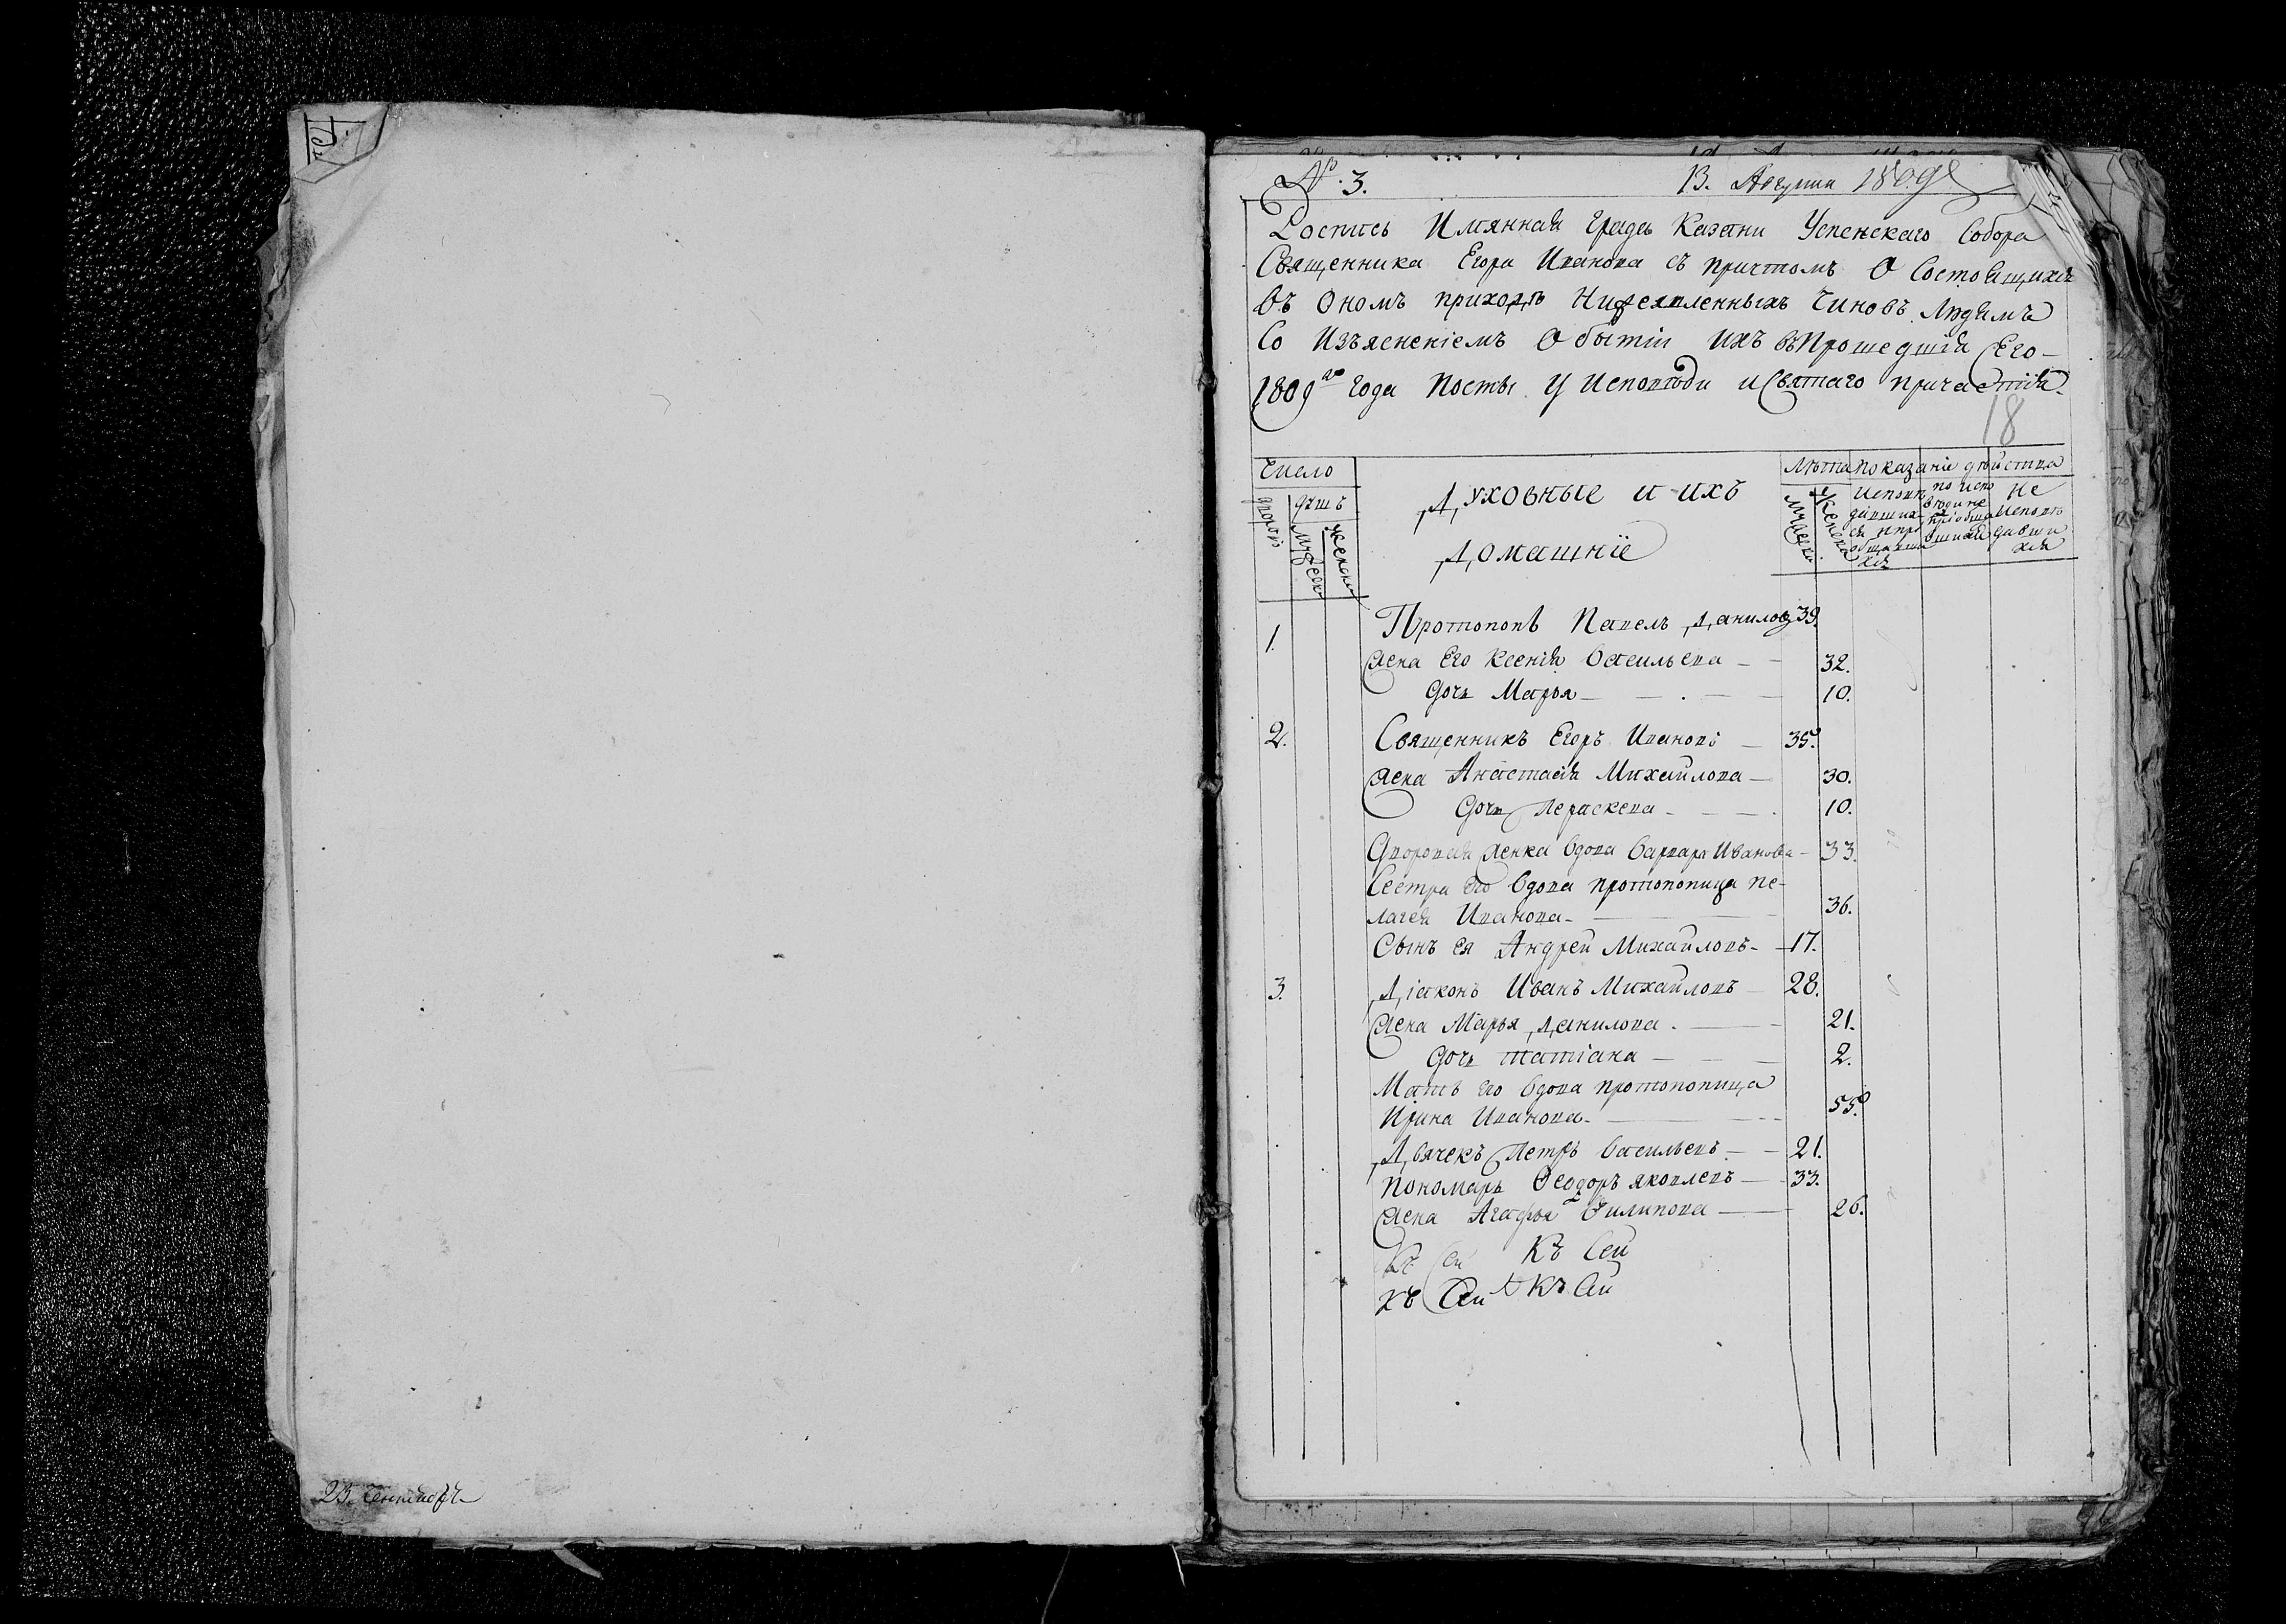 23. Сентябрь
№ 3. 13. Августа 1809
Роспись Имянная града Казани Успенскаго Собора
Священника Егора Иванова съ причтомъ О Состоящихъ
въ Ономъ приходѣ Нижеявленныхъ Чиновъ Людѣмъ
Со Изъясненіемъ О бытіи ихъ въ Прошедшія Сего
1809го Года Посты У Исповѣди и Святаго причастія.
18
Число
дворовъ
душъ
мужеска
женска
Духовные и ихъ
Домашніе
Лѣта
мужеска
женска
показаніе дѣйства
Исповѣ
давших
ся и при
общавши
хся
по испо
вѣди не
пріобща
вшихся
не
Исповѣ
давши
хся
1. Протопопъ Павелъ Даниловъ 39.
жена Его Ксенія Васильева 32.
дочь Марья 10.
2. Священникъ Егоръ Ивановъ 35.
жена Анастасія Михайлова 30.
дочь Параскева 10.
Дворовая женка вдова Варвара Иванова 33.
Сестра Его вдова протопопица пе-
лагея Иванова 36.
Сынъ ея Андрей Михайловъ 17.
3. Діаконъ Иванъ Михайловъ 28.
жена Марья Данилова 21.
дочь татіана 2.
Мать Его вдова протопопица
Ирина Иванова 55.
Дьячекъ Петръ Васильевъ 21.
пономарь Ѳеодоръ яковлевъ 33.
жена Агафья Филипова 26.
Къ Сей Къ Сей
Къ Сей Къ Сей